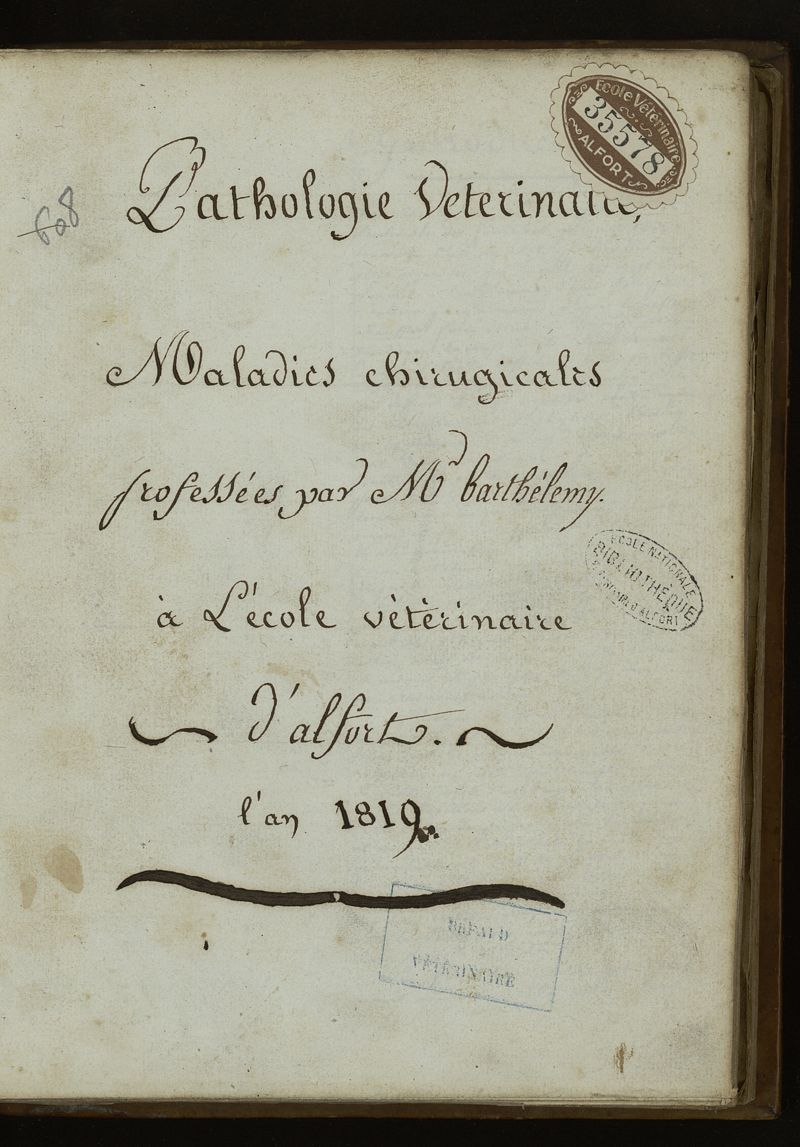 Ecole Vétérinaire
35578
ALFORT
608
Pathologie Veterinaire,
Maladies chirugicales
professées par Mr barthélemy.
à L'école vétérinaire
d'alfort.
l'an 1819.
ECOLE NATIONALE
BIBLIOTHÈQUE
D'ALFORT
VÉTÉRINAIRE